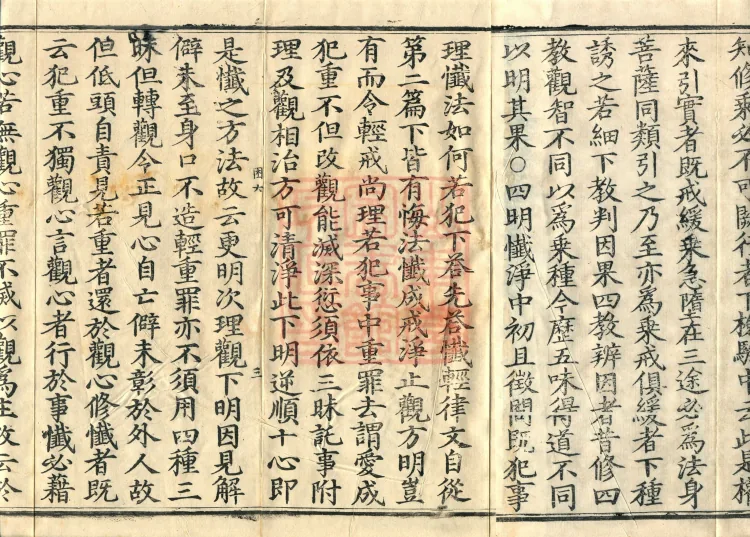 知修乘必不可闕行者下撿驗中云此是權
來引實者既戒緩乘急墮在三途必為法身
菩薩同類引之乃至亦為乘戒俱緩者下種
誘之若細下教判因果四教辨因者昔修四
教觀智不同以為乘種今歷五味得道不同
以明其果○四明懺淨中初且徵問既犯事
理懺法如何若犯下荅先荅懺輕律文自從
第二篇下皆有悔法懺成戒淨止觀方明豈
有而令輕戒尚理若犯事中重罪去謂愛成
犯重不但改觀能滅深愆須依三昧託事附
理及觀相治方可清淨此下明逆順十心即
圖六 三
是懺之方法故云更明次理觀下明因見解
僻未至身口不造輕重罪亦不須用四種三
昧但轉觀令正見心自亡僻未彰於外人故
但低頭自責見若重者還於觀心修懺者既
云犯重不獨觀心言觀心者行於事懺必藉
觀心若無觀心重罪不滅以觀為主故云於